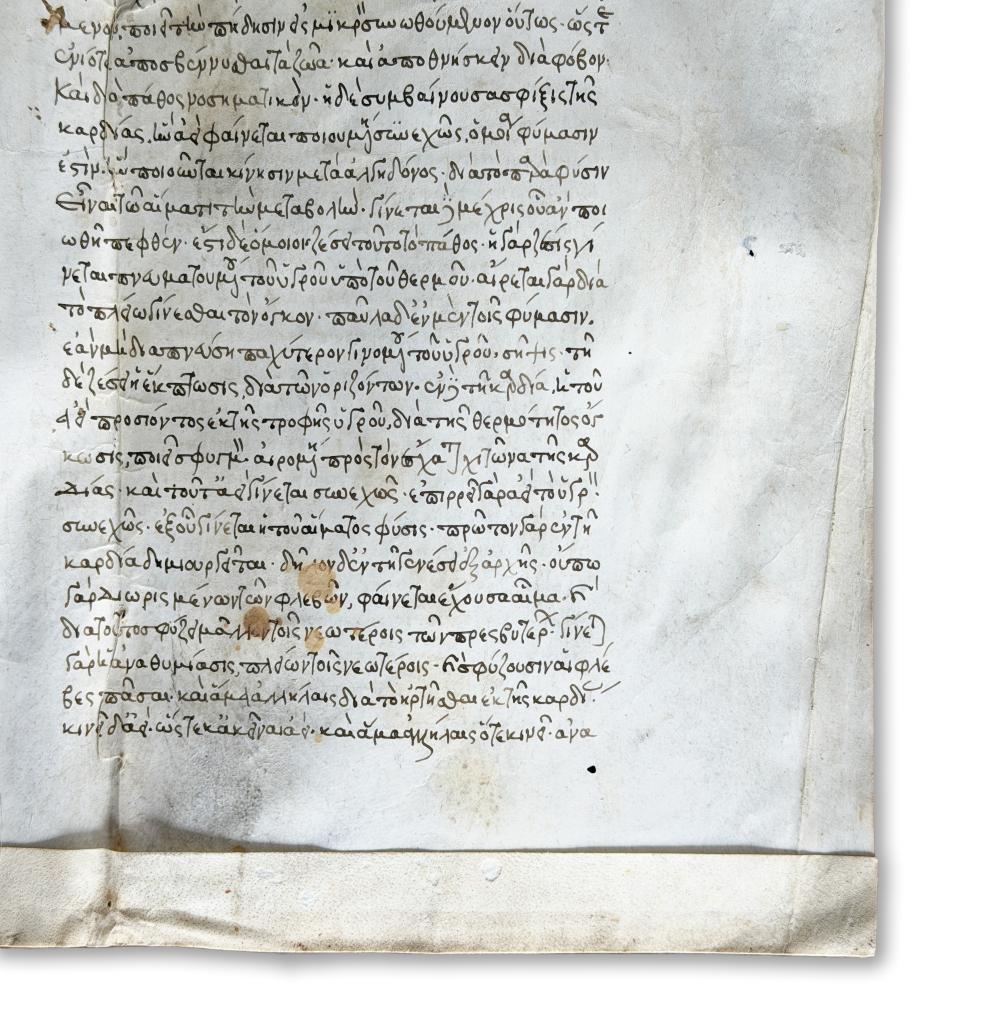 μενον, ποιεῖ τὴν πήδησιν εἰς μικρὸν συνωθούμενον οὕτως· ὥστε
ἐνίοτε ἀποσβέννυσθαι τὰ ζῶα· καὶ ἀποθνήσκειν διὰ φόβον·
Καὶ διὰ πάθος νοσηματικόν· ἡ δὲ συμβαίνουσα σφύξις τῆς
καρδίας, ἣν ἀεὶ φαίνεται ποιουμένη συνεχῶς, ὁμοία φύμασιν
ἐστὶν. ἣν ποιοῦνται κίνησιν μετὰ ἀλγηδόνος· διὰ τὸ παρὰ φύσιν
Εἶναι τῶ αἵματι τὴν μεταβολήν· γίνεται δὲ μέχρις οὗ ἂν ποι
ωθῆ πεφθέν· ἔστι δὲ ὅμοιον ζέσει τοῦτο τὸ πάθος· ἡ γὰρ ζέσις γί
νεται πνευματουμένου τοῦ ὑγροῦ ὑπὸ τοῦ θερμοῦ· αἴρεται γὰρ διὰ
τὸ πλείω γίνεσθαι τὸν ὄγκον· παῦλα δ' ἐν μὲν τοῖς φύμασιν,
ἐὰν μὴ διαπνεύση παχύτερον γινομένου τοῦ ὑγροῦ, σῆψις· τῆ
δὲ ζέσει ἡ ἔκπτωσις, διὰ τῶν ὁριζόντων· ἐν δὲ τῆ καρδία, ἡ τοῦ
ἀεὶ προσιόντος ἐκ τῆς τροφῆς ὑγροῦ, διὰ τῆς θερμότητος ὄγ
κωσις, ποιεῖ σφυγμόν· αἰρομένη πρὸς τὸν ἔσχατον χιτῶνα τῆς καρ
δίας· καὶ τοῦτ' ἀεὶ γίνεται συνεχῶς· ἐπιρρεῖ γὰρ ἀεὶ τὸ ὑγρὸν
συνεχῶς· ἐξ οὗ γίνεται ἡ τοῦ αἵματος φύσις· πρῶτον γὰρ ἐν τῆ
καρδία δημιουργεῖται· δῆλον δ' ἐν τῆ γενέσει ἐξ ἀρχῆς· οὔπω
γὰρ διωρισμένων τῶν φλεβῶν, φαίνεται ἔχουσα αἷμα· καὶ
διὰ τοῦτο σφύζει μᾶλλον τοῖς νεωτέροις τῶν πρεσβυτέρων· γίνεται
γὰρ ἡ ἀναθυμίασις, πλείων τοῖς νεωτέροις· καὶ σφύζουσιν αἱ φλέ
βες πᾶσαι· καὶ ἅμα ἀλλήλαις διὰ τὸ ἠρτῆσθαι ἐκ τῆς καρδίας·
κινεῖ δ' ἀεί· ὥστε κἀκεῖναι ἀεί· καὶ ἅμα ἀλλήλαις ὅτε κινεῖ· ἀνα